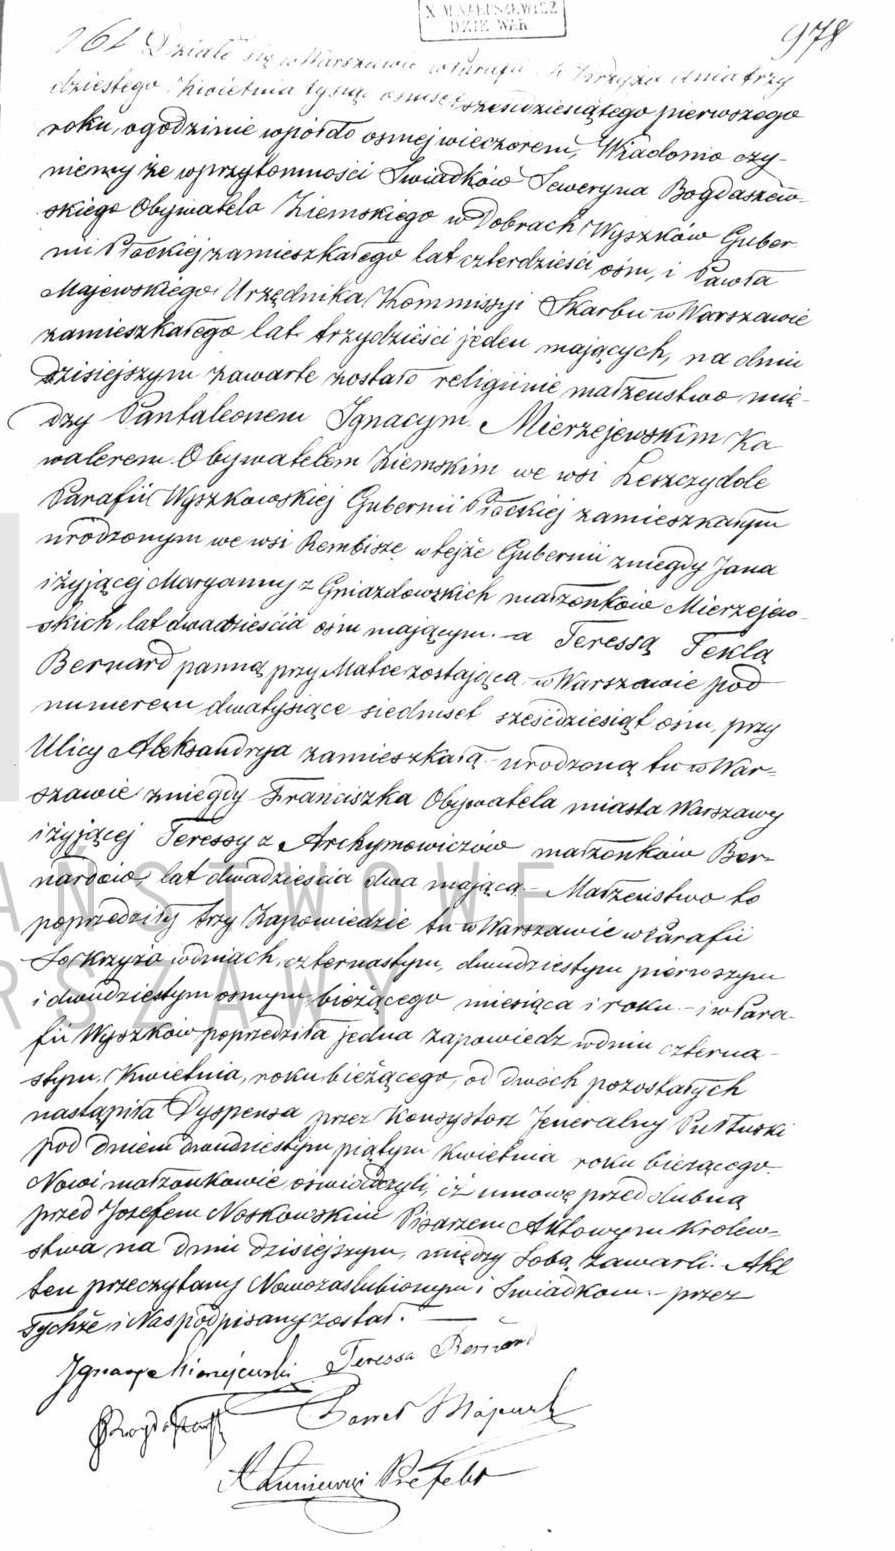 978
161 Działo się w Warszawie w Parafii Sgo Krzyża dnia trzy
dziestego Kwietnia tysiąc osmset sześdziesiątego pierwszego
roku, o godzinie wpół do osmej wieczorem, Wiadomo czy-
niemy że w przytomności Swiadków Seweryna Bogdaszew-
skiego Obywatela Ziemskiego w Dobrach Wyszków Guber
nii Płockiej zamieszkałego lat czterdzieści ośm, i Pawła
Majewskiego Urzędnika Kommissyi Skarbu w Warszawie
zamieszkałego lat trzydzieści jeden mających, na dniu
dzisiejszym zawarte zostało religijnie małżeństwo mię-
dzy Pantaleonem Ignacym Mierzejewskim Ka-
walerem Obywatelem Ziemskim we wsi Leszczydole
Parafii Wyszkowskiej Gubernii Płockiej zamieszkałym
urodzonym we wsi Rembisze w tejże Gubernii z niegdy Jana
i żyjącej Maryanny z Gniazdowskich małżonków Mierzejew-
skich, lat dwadzieścia ośm mającym. – a Teressą Teklą
Bernard panną przy Matce zostającą w Warszawie pod
numerem dwatysiące siedmset sześćdziesiąt ośm, przy
Ulicy Aleksandrya zamieszkałą – urodzoną tu w War-
szawie z niegdy Franciszka Obywatela miasta Warszawy
i żyjącej Teressy z Archymowiczów małżonków Ber-
nardów lat dwadzieścia dwa mającą. – Małżeństwo to
poprzedziły trzy Zapowiedzie tu w Warszawie w Parafii
Sgo Krzyża w dniach, czternastym, dwudziestym pierwszym
i dwudziestym osmym bieżącego miesiąca i roku – i w Para-
fii Wyszków poprzedziła jedna zapowiedz w dniu czterna-
stym Kwietnia, roku bieżącego, od dwóch pozostałych
nastąpiła Dyspensa przez Konsystorz Jeneralny Pułtuski
pod dniem dwudziestym piątym Kwietnia roku bieżącego.
Nowi małżonkowie oświadczyli, iż umowę przedślubną
przed Jozefem Noskowskim Pisarzem Aktowym Krolew-
stwa na dniu dzisiejszym, między sobą zawarli. Akt
ten przeczytany Nowozaslubionym i Swiadkom – przez
Tychże i Nas podpisany został. –
Ignacy Mierzejewski Teressa Bernard
Paweł Majewski